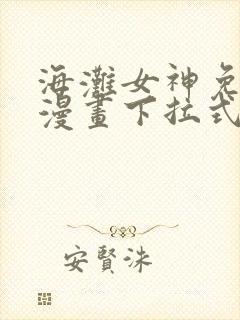 海灘女神免
漫畫下拉式
安賢洙